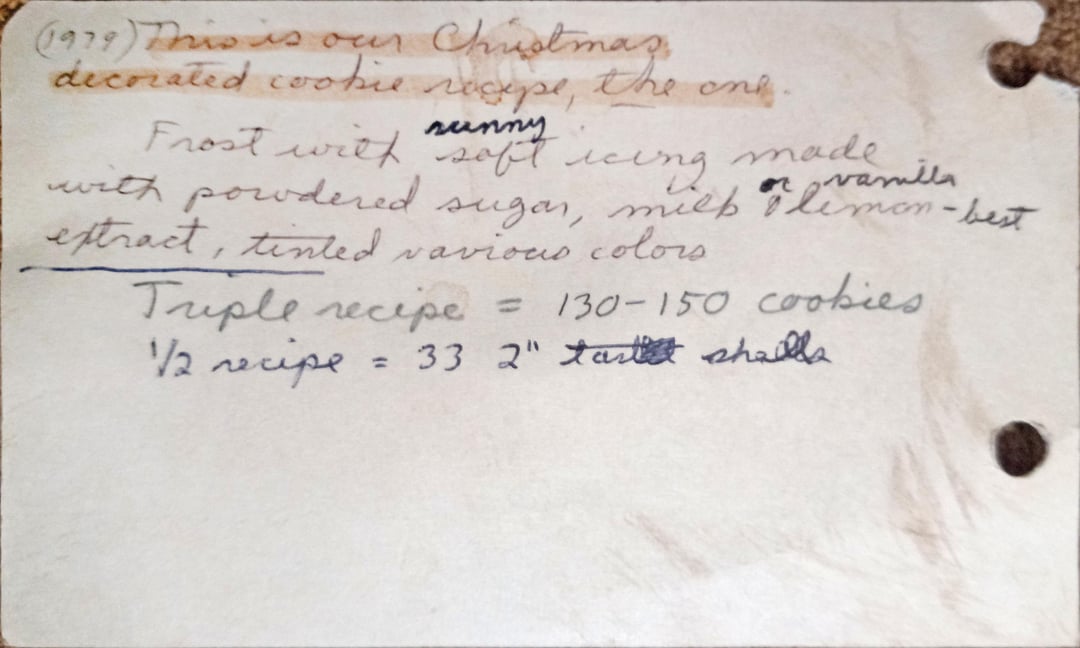 (1979) This is our Christmas
decorated cookie recipe, the one.
runny
Frost with soft icing made
or vanilla
with powdered sugar, milk & lemon - best
extract, tinted various colors
Triple recipe = 130-150 cookies
1/2 recipe = 33 2" tart shells